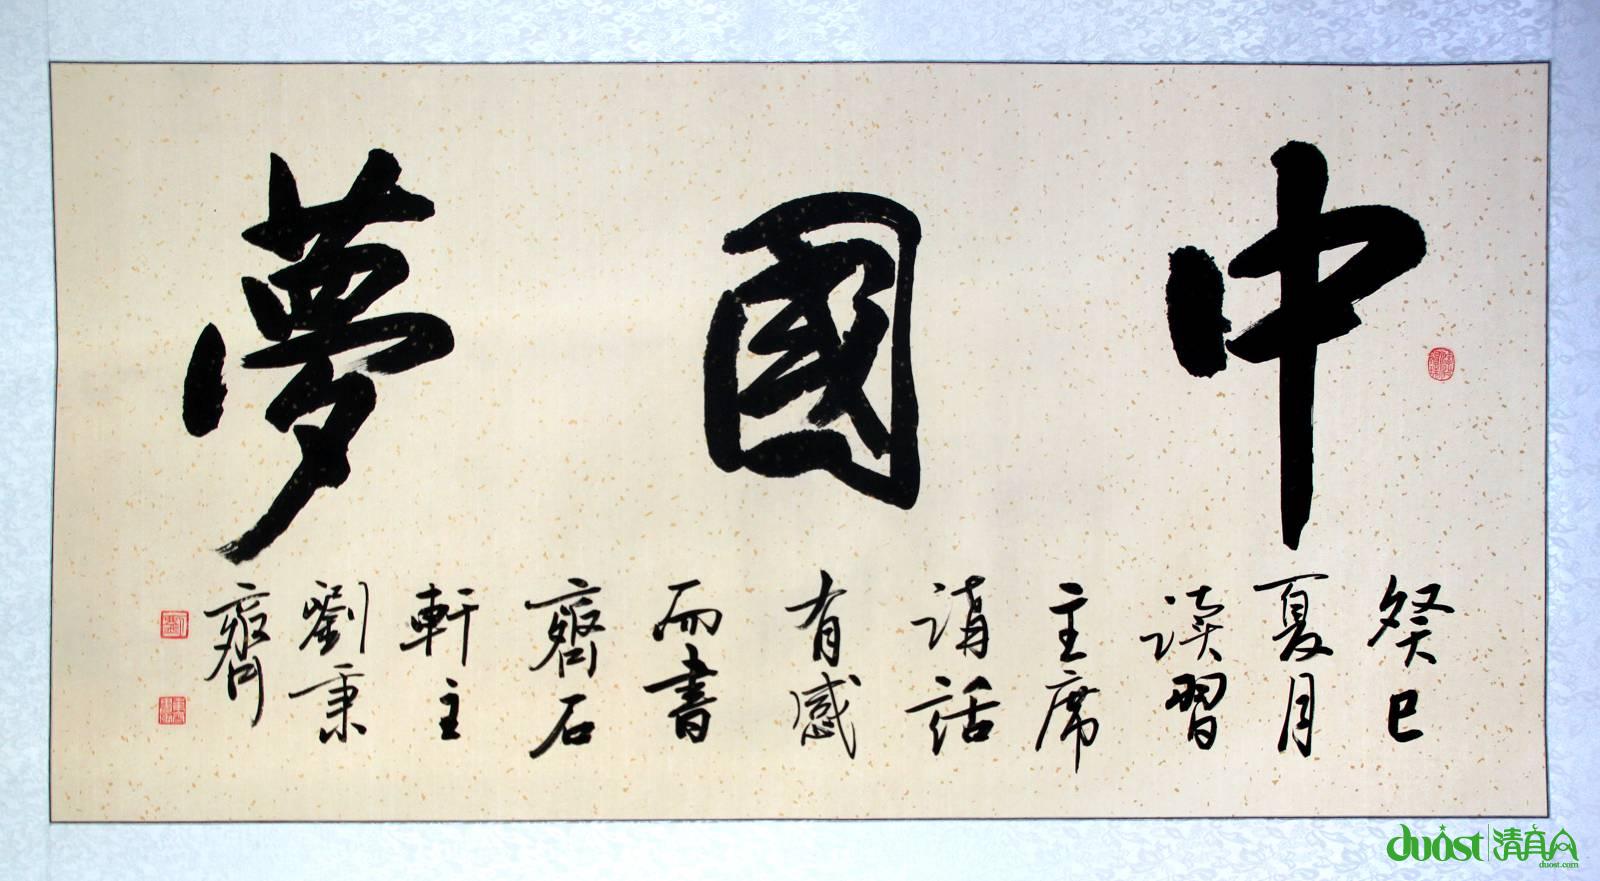 中國夢
癸巳
夏月
读習
主席
講話
有感
而書
齋石
軒主
劉秉
齋
duost 清真人
duost.com